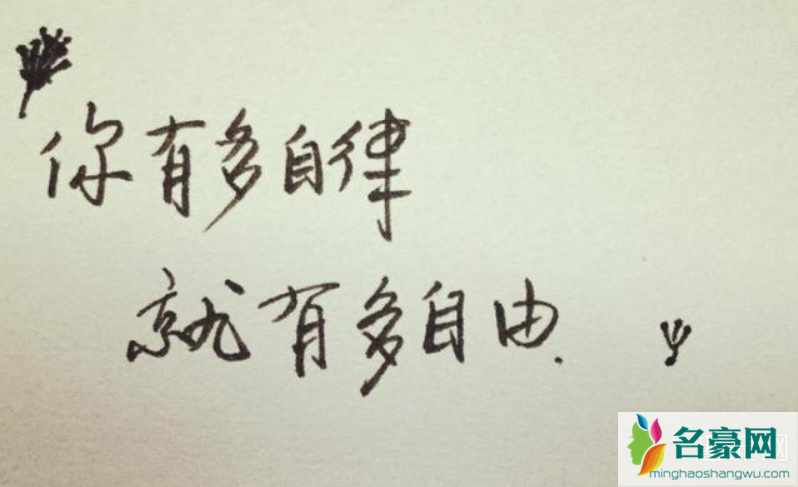 你有多自律
就有多自由.
名豪网
minghaoshangwu.com